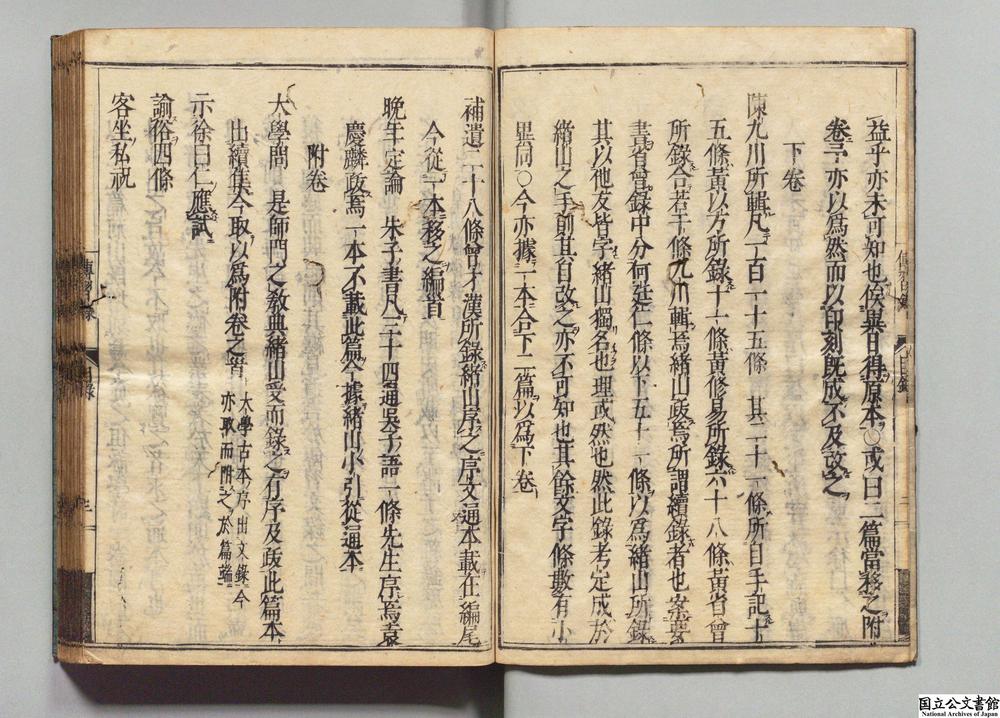 益乎亦未可知也俟異日得原本○或曰二篇當移之附
卷云亦以爲然而以印刻既成不及改之
下卷
陳九川所輯凡一百一十五條 其二十一條所自手記十
五條黃以方所錄十一條黃修易所錄六十八條黃省曾
所錄合若干條九川輯焉緒山跋焉所謂續錄者也案
省曾錄中分何廷仁條以下五十一條以爲緒山所錄
其以他友皆字緒山獨名也理或然也然此錄考定成於
緒山之手則其自改之亦不可知也其餘文字條數有小
異同○今亦據一本合下二篇以爲下卷
補遺二十八條曾才漢所錄緒山序之序文通本載在編尾
今從一本移之編首
晚年定論 朱子書凡三十四通吳子語一條先生序焉袁
慶麟跋焉一本不載此篇今據緒山小引從通本
附卷
大學問 是師門之教典緒山受而錄之有序及跋此篇本
出續集今取以爲附卷之首 大學古本序出文錄今
亦取而附之於篇端
示徐曰仁應試
諭俗四條
客坐私祝
傳習錄
目錄
二
傳習錄
目錄
三
国立公文書館
National Archives of Japan